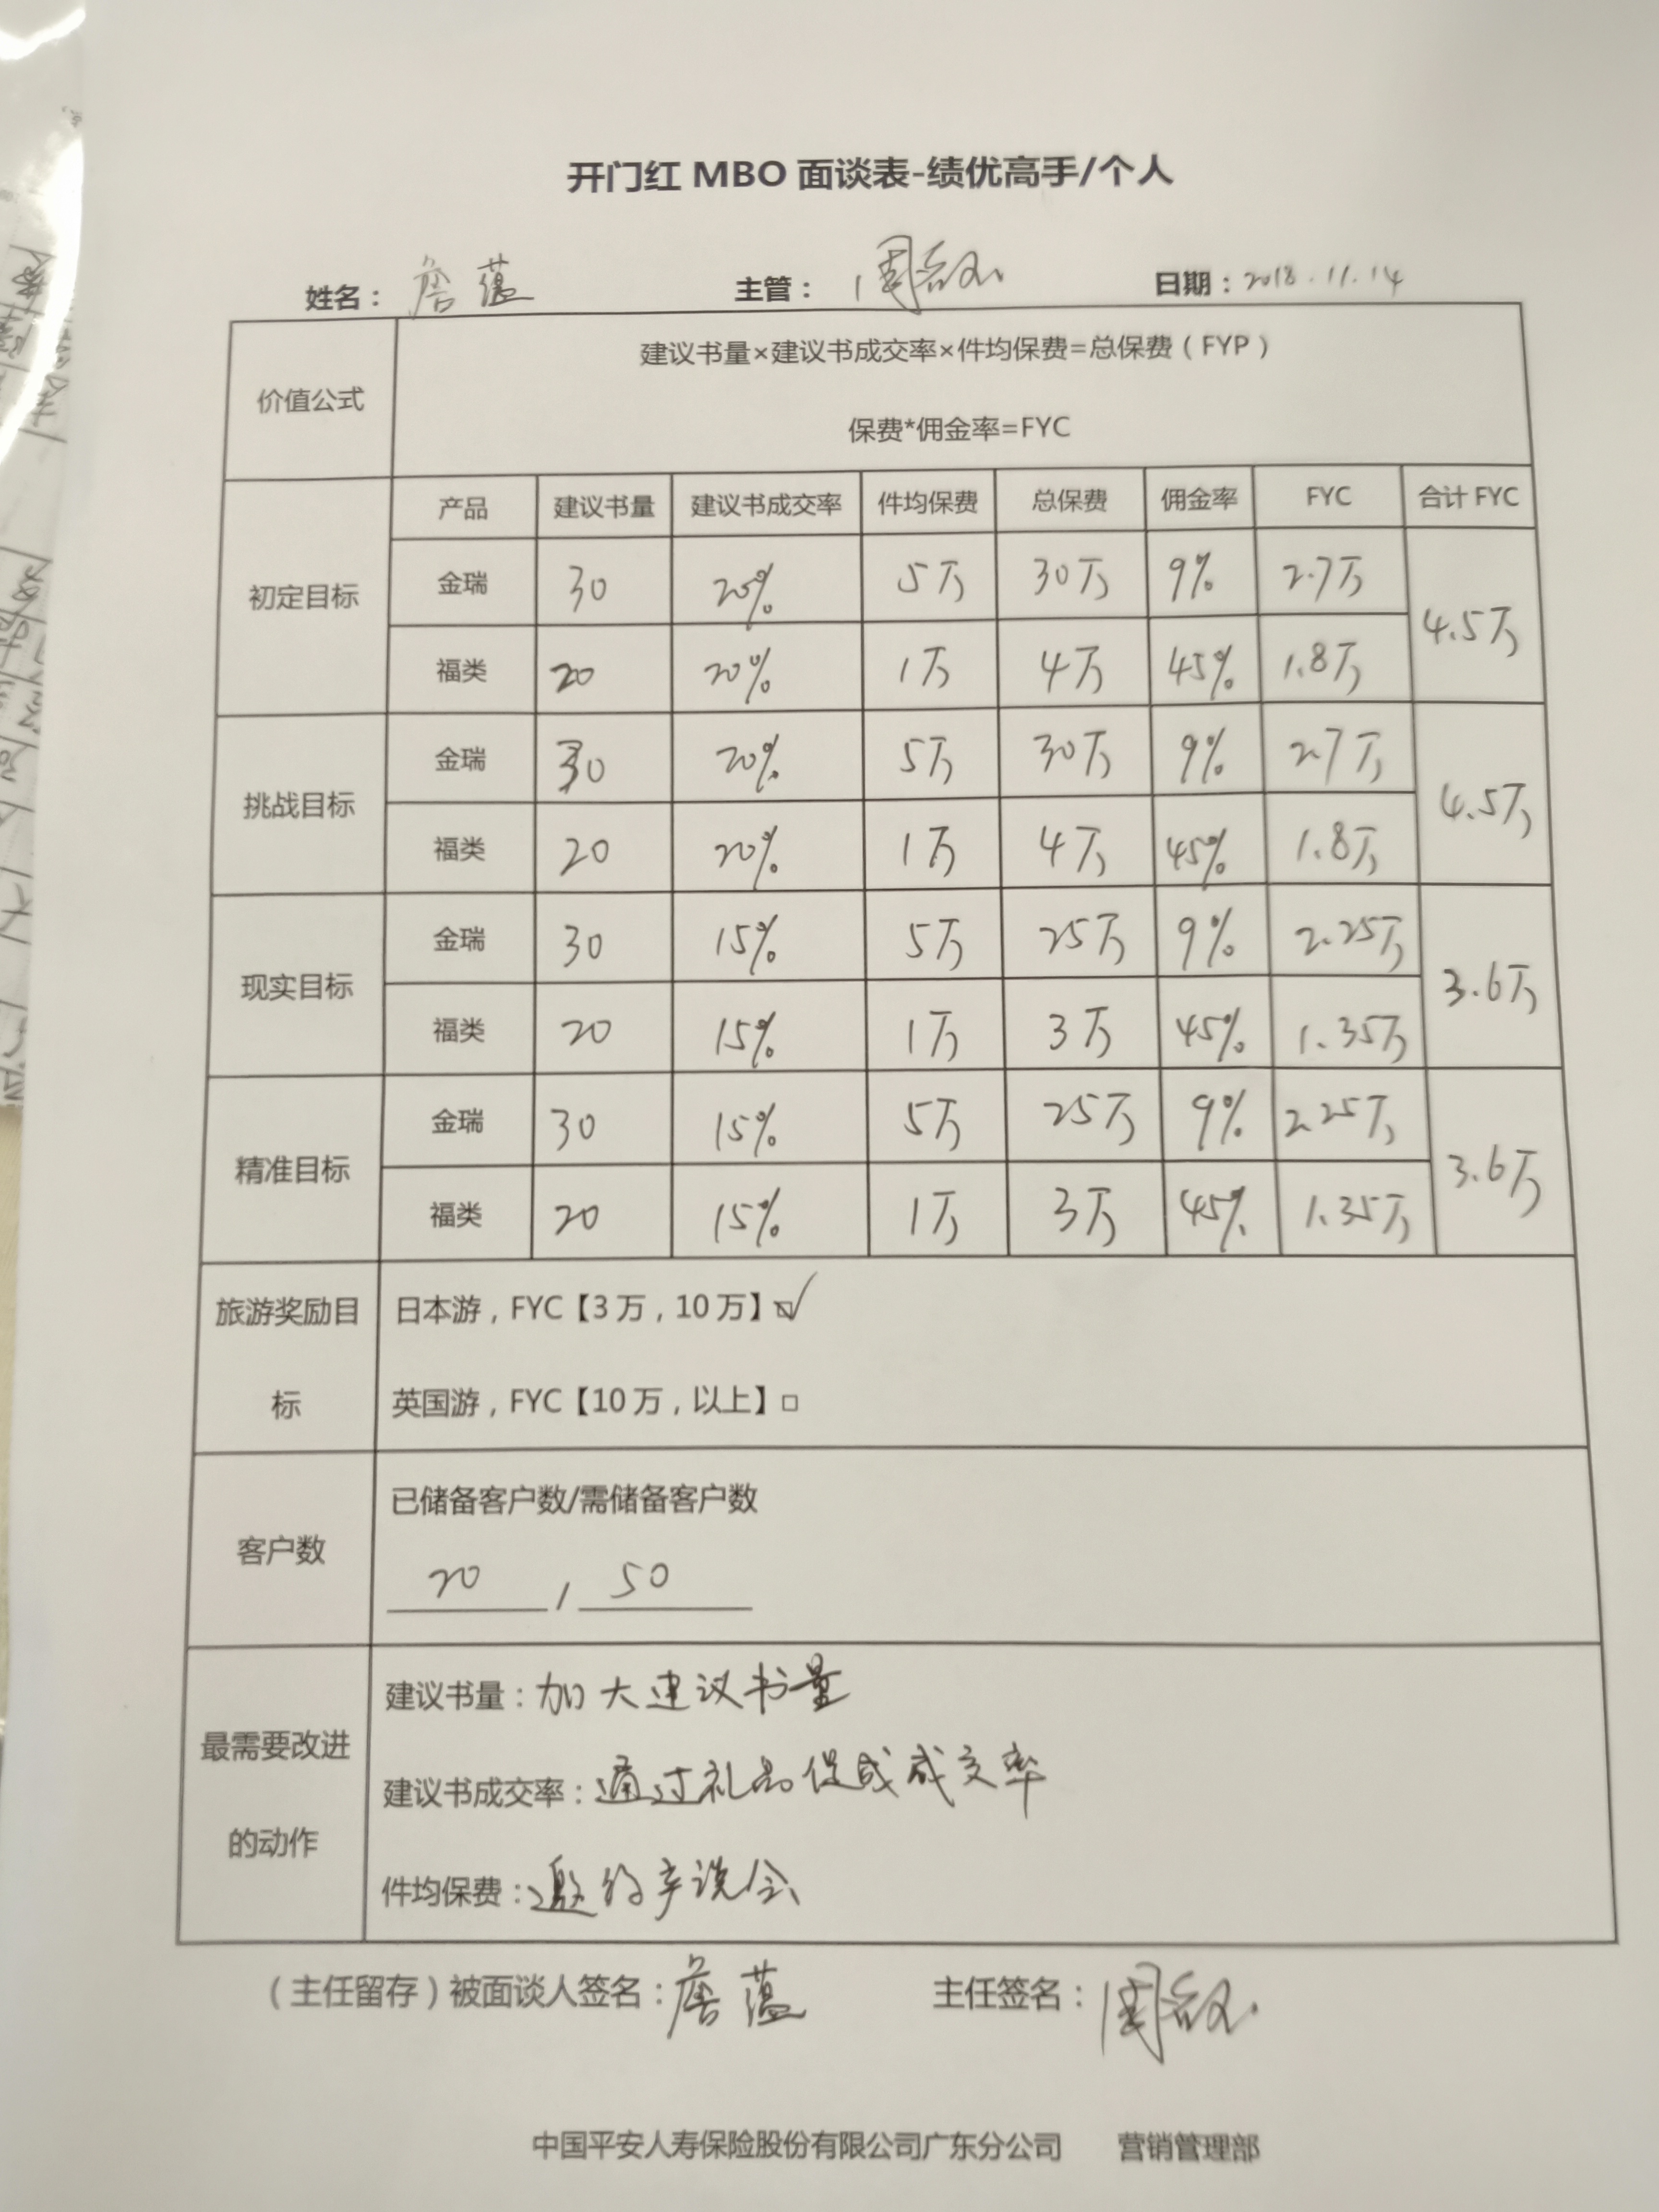 开门红 MBO 面谈表-绩优高手/个人
姓名： 詹蕴 主管： 周 日期：2018.11.14
价值公式
建议书量×建议书成交率×件均保费=总保费（FYP）
保费*佣金率=FYC
产品 建议书量 建议书成交率 件均保费 总保费 佣金率 FYC 合计 FYC
初定目标
金瑞 30 20% 5万 30万 9% 2.7万
4.5万
福类 20 20% 1万 4万 45% 1.8万
挑战目标
金瑞 30 20% 5万 30万 9% 2.7万
4.5万
福类 20 20% 1万 4万 45% 1.8万
现实目标
金瑞 30 15% 5万 25万 9% 2.25万
3.6万
福类 20 15% 1万 3万 45% 1.35万
精准目标
金瑞 30 15% 5万 25万 9% 2.25万
3.6万
福类 20 15% 1万 3万 45% 1.35万
旅游奖励目
标
日本游，FYC【3 万，10 万】☑
英国游，FYC【10 万，以上】□
客户数
已储备客户数/需储备客户数
20 / 50
最需要改进
的动作
建议书量：加大建议书量
建议书成交率：通过礼品促成成交率
件均保费：邀约产说会
（主任留存）被面谈人签名：詹蕴 主任签名：周
中国平安人寿保险股份有限公司广东分公司 营销管理部